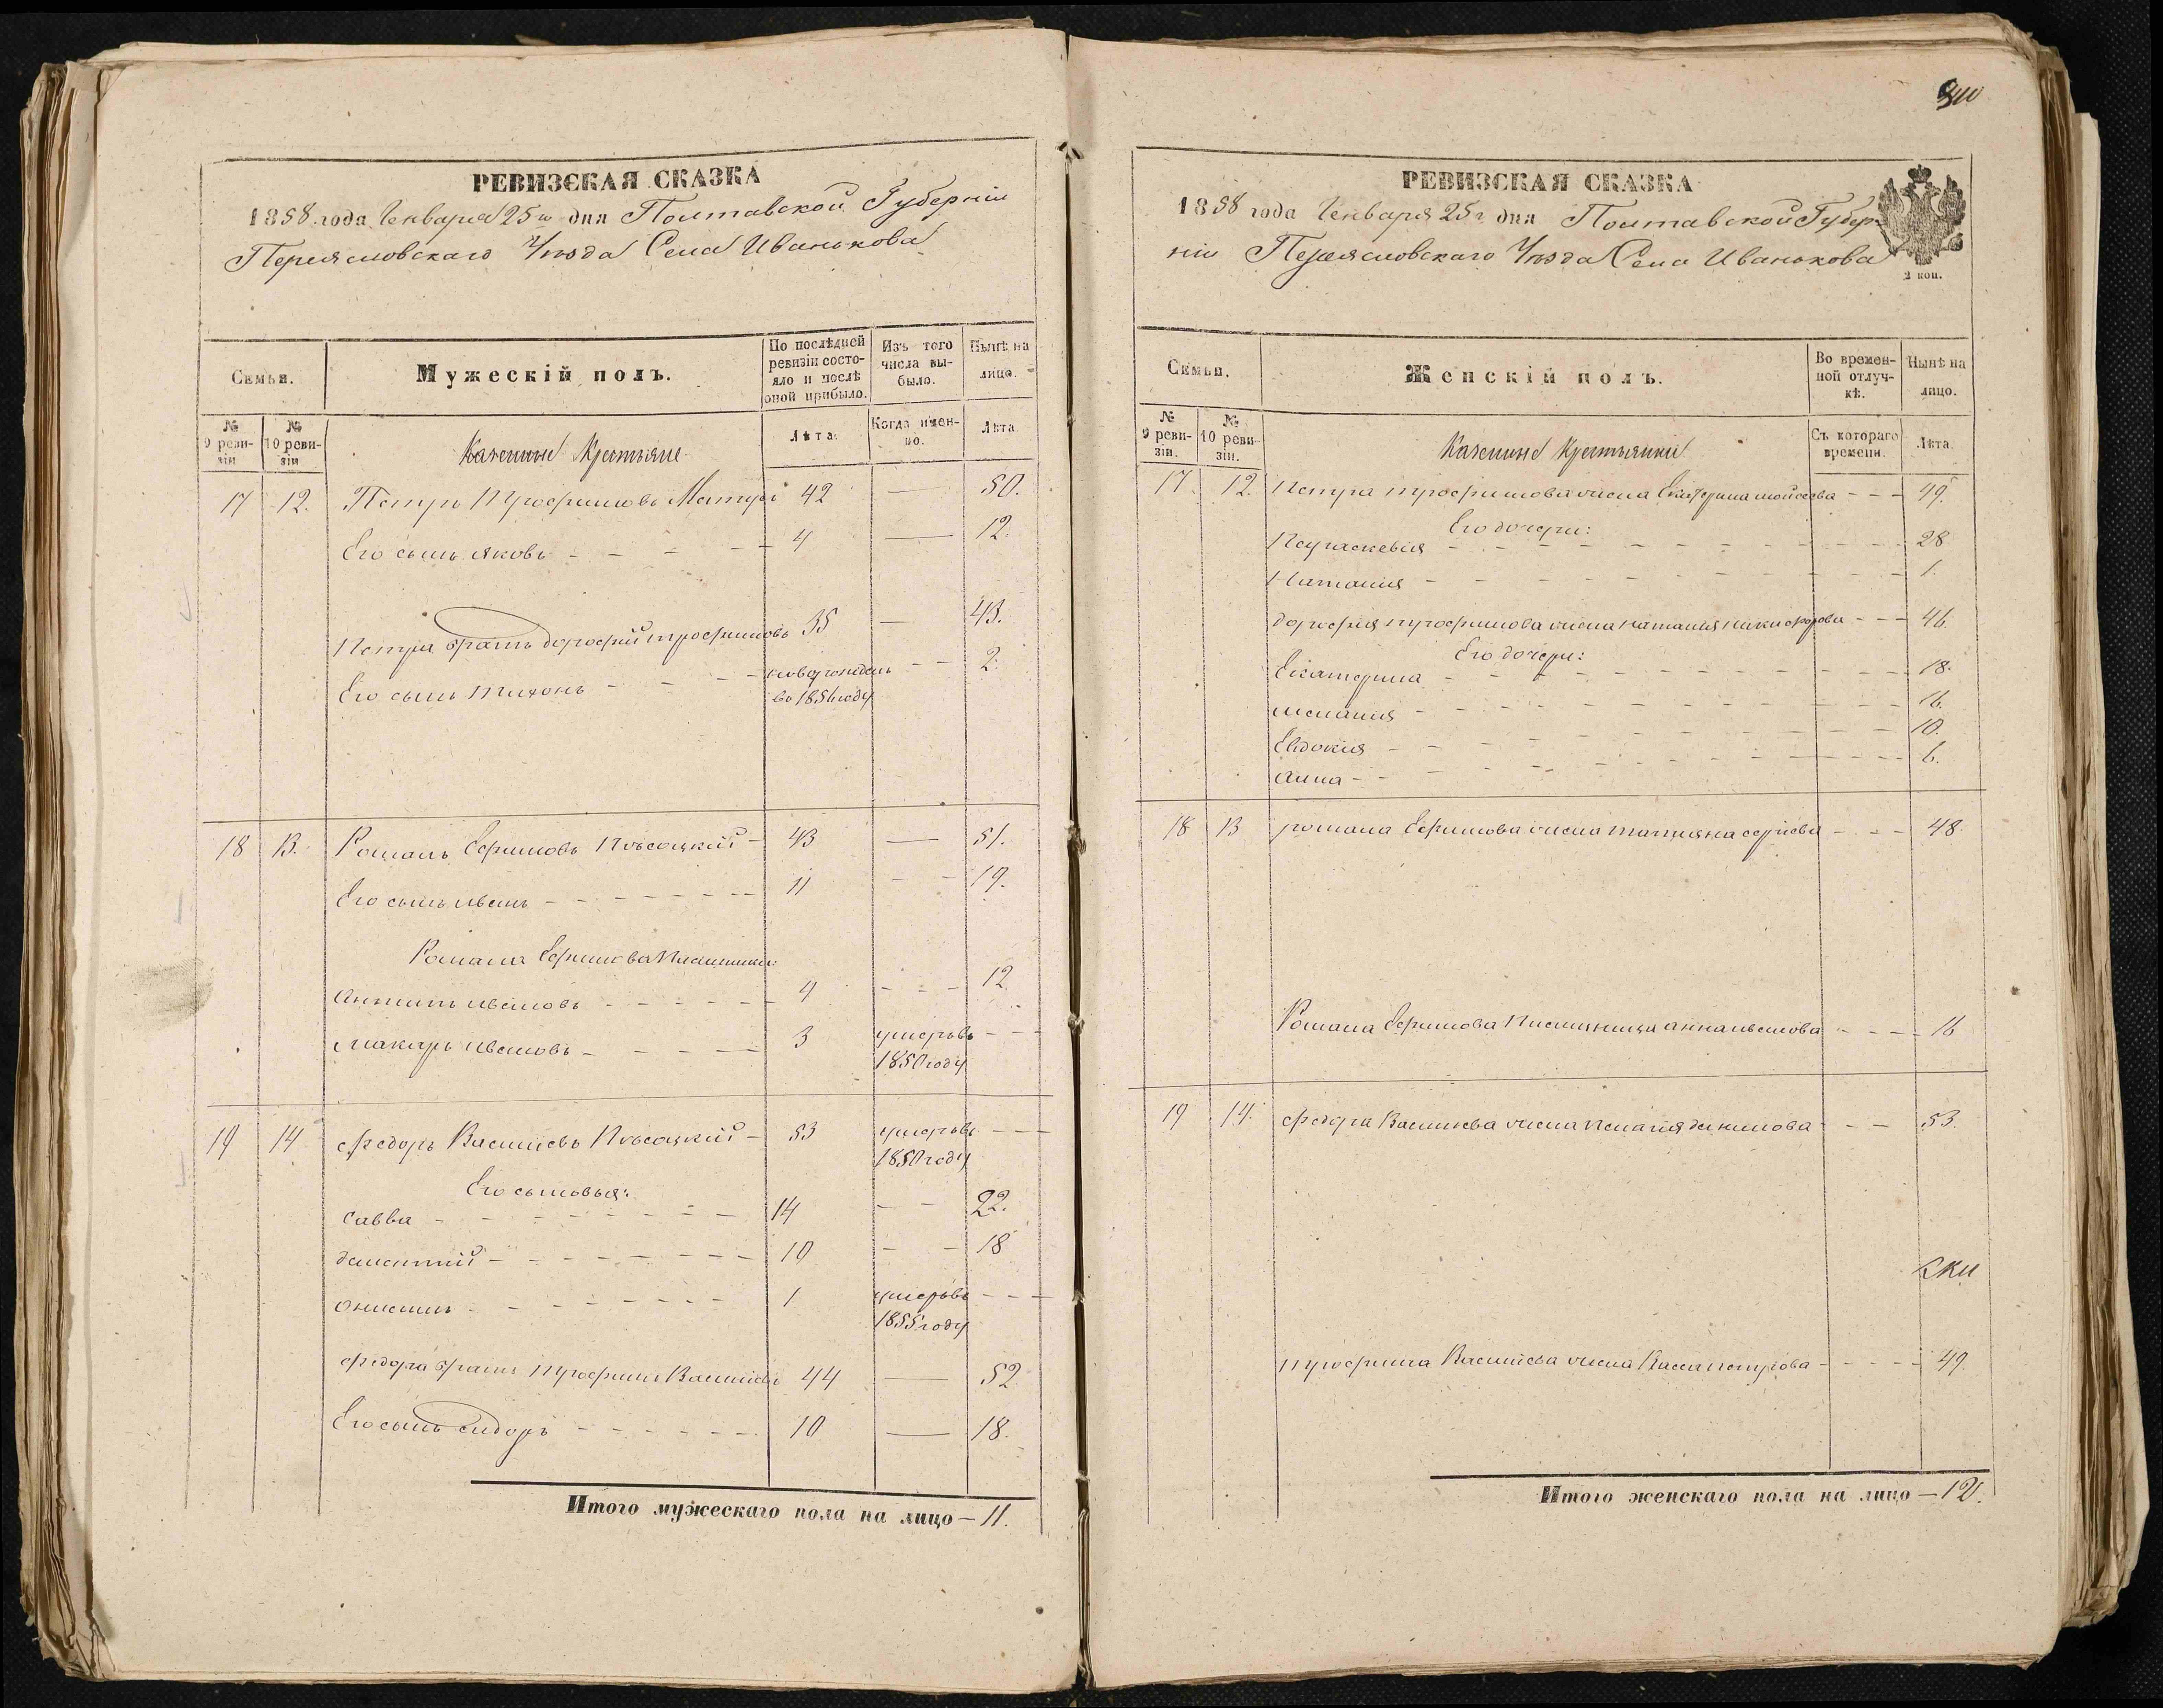 РЕВИЗСКАЯ СКАЗКА
1858 года Генваря 25го дня Полтавской Губерніи
Переясловскаго Уѣзда Села Иванькова
Семьи.
Мужескій полъ.
По послѣдней ревизіи состояло и послѣ оной прибыло.
Изъ того числа выбыло.
Нынѣ на лицо.
№ 9 ревизіи
№ 10 ревизіи
Казенные Крестьяне
Лѣта.
Когда именно.
Лѣта.
17 12. Петръ Трофимовъ 42 — 50.
Его сынъ Яковъ - - - - 4 — 12.
Петра братъ дорофій трофимовъ 35 — 43.
Его сынъ тихонъ - - - новорожденъ - - 2.
во 1856 году
18 13. Романъ Ефимовъ 43 — 51.
Его сынъ иванъ - - - - 11 - - 19.
Романа Ефимова племянники:
Антипъ ивановъ - - - - 4 - - - 12.
Макаръ ивановъ - - - - 3 умеръ въ - - -
1850 году
19 14 федоръ Василіевъ 53 умеръ въ - - -
1850 году
Его сыновья:
Савва - - - - - - - 14 - - 22.
дементій - - - - - - - 10 - - 18
онисимъ - - - - - - - 1 умеръ въ - - -
1855 году
федора братъ трофимъ Василіевъ 44 — 52.
Его сынъ сидоръ - - - - - - 10 — 18.
Итого мужескаго пола на лицо — 11.
РЕВИЗСКАЯ СКАЗКА
1858 года Генваря 25г дня Полтавской Губер-
ніи Переясловскаго Уѣзда Села Иванькова
2 коп.
Семьи.
Женскій полъ.
Во временной отлучкѣ.
Нынѣ на лицо.
№ 9 ревизіи.
№ 10 ревизіи.
Казенные Крестьянки
Съ котораго времени.
Лѣта.
17. 12. Петра трофимова жена Екатерина моисеева - - - 49.
Его дочери:
Параскевія - - - - - - - - 28
Наталия - - - - - - - - 1.
дорофія трофимова жена наталия никифорова - - - 46.
Его дочери:
Екатерина - - - - - - - - 18.
мелания - - - - - - - - 16.
Евдокия - - - - - - - - 10.
Анна - - - - - - - - 6.
18 13 романа Ефимова жена татияна - - - 48.
Романа Ефимова племянница анна иванова - - - - 16
19 14. федора Василиева жена пелагия данилова - - - 53.
трофима Василиева жена Васса петрова - - - - 49.
Итого женскаго пола на лицо — 12.